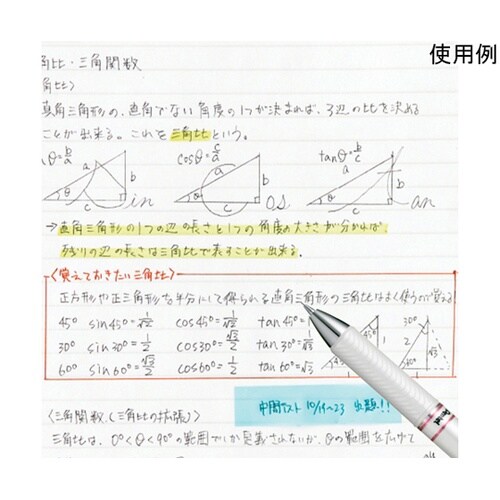 使用例
角比・三角関数
角比〉
直角三角形の、直角でない角度の1つが決まれば、3辺の比を決める
ことが出来る。これを三角比という。
nθ=b/a cosθ=c/a tanθ=b/c
a b c θ in a b c θ os a b c θ an
→直角三角形の1つの辺の長さと1つの角度の大きさが分かれば、
残りの辺の長さは三角比で表すことが出来る。
〈覚えておきたい三角比〉
正方形や正三角形を半分にして得られる直角三角形の三角比はよく使うので覚える!
45° sin45°=1/√2 cos45°=1/√2 tan45°=1
30° sin30°=1/2 cos30°=√3/2 tan30°=
60° sin60°=√3/2 cos60°=1/2 tan60°=√3
45° 1 30° 2 √3
中間テスト 10/19~23 出題!!
〈三角関数(三角比の拡張)〉
三角比は、0°<θ<90°の範囲でしか定義されないが、θの範囲を広げて